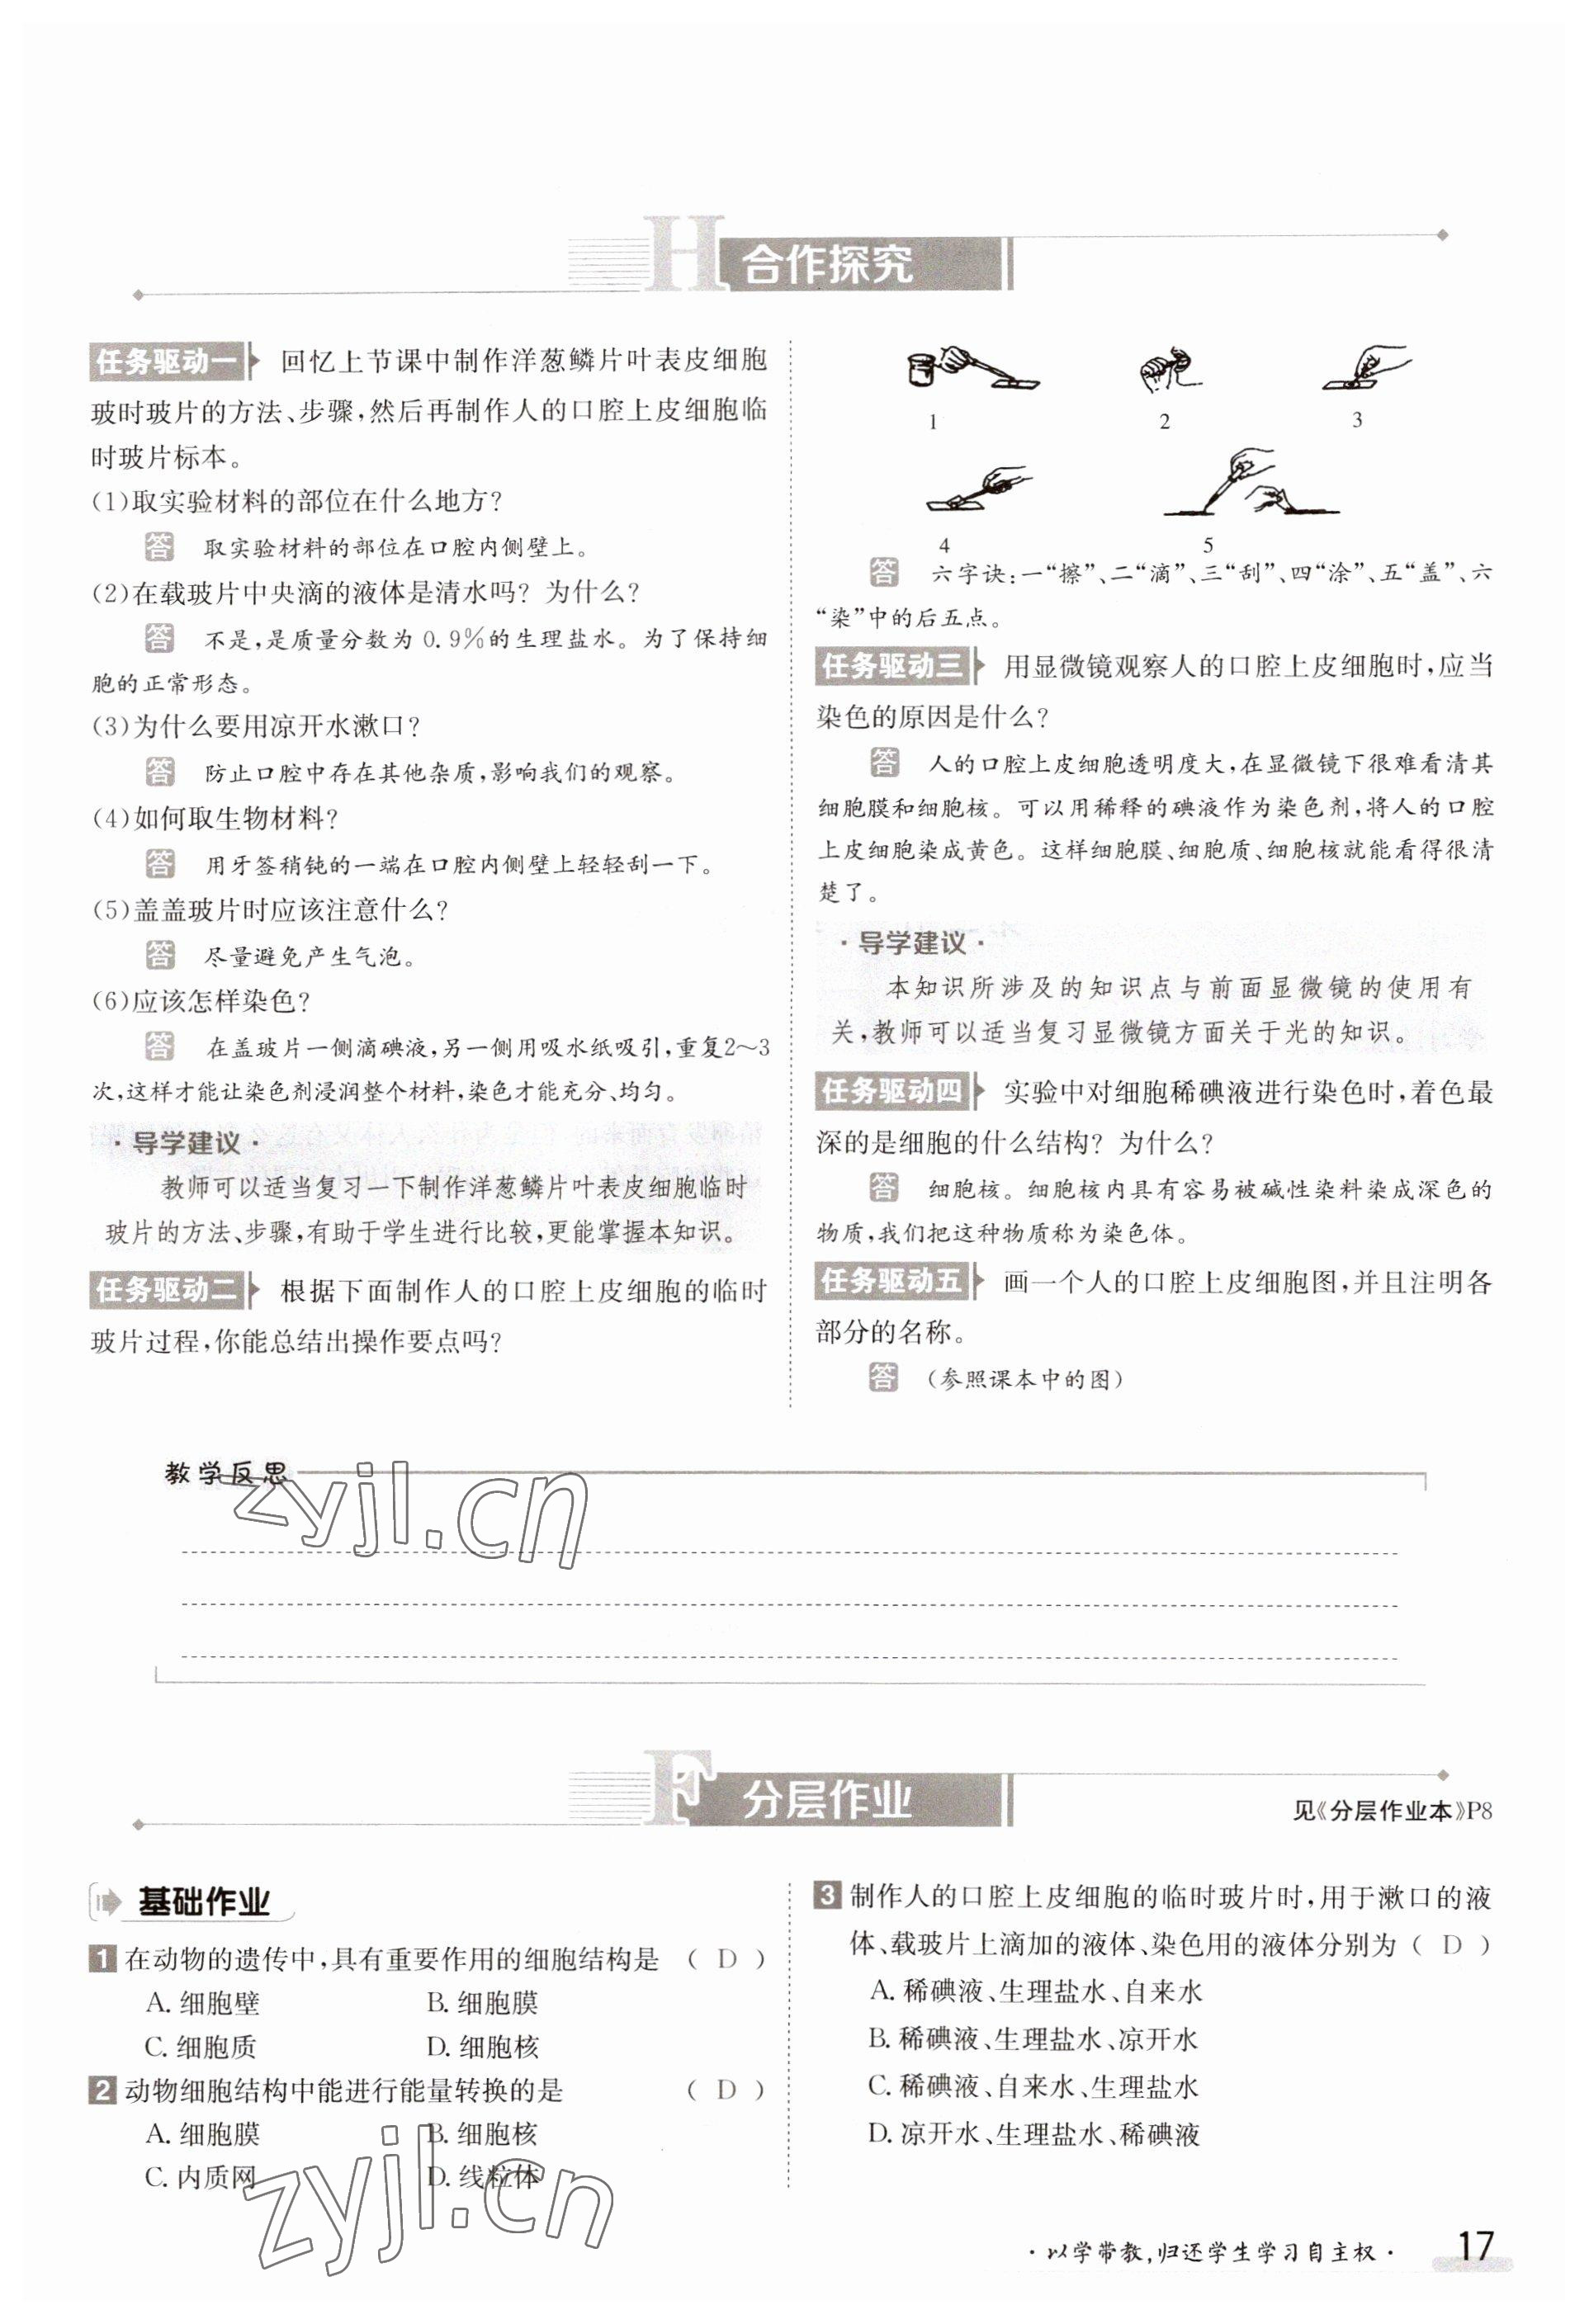 H 合作探究
任务驱动一 回忆上节课中制作洋葱鳞片叶表皮细胞
玻时玻片的方法、步骤,然后再制作人的口腔上皮细胞临
时玻片标本。
(1)取实验材料的部位在什么地方?
答 取实验材料的部位在口腔内侧壁上。
(2)在载玻片中央滴的液体是清水吗? 为什么?
答 不是,是质量分数为 0.9%的生理盐水。为了保持细
胞的正常形态。
(3)为什么要用凉开水漱口?
答 防止口腔中存在其他杂质,影响我们的观察。
(4)如何取生物材料?
答 用牙签稍钝的一端在口腔内侧壁上轻轻刮一下。
(5)盖盖玻片时应该注意什么?
答 尽量避免产生气泡。
(6)应该怎样染色?
答 在盖玻片一侧滴碘液,另一侧用吸水纸吸引,重复2~3
次,这样才能让染色剂浸润整个材料,染色才能充分、均匀。
·导学建议·
教师可以适当复习一下制作洋葱鳞片叶表皮细胞临时
玻片的方法、步骤,有助于学生进行比较,更能掌握本知识。
任务驱动二 根据下面制作人的口腔上皮细胞的临时
玻片过程,你能总结出操作要点吗?
1 2 3
4 5
答 六字诀:一“擦”、二“滴”、三“刮”、四“涂”、五“盖”、六
“染”中的后五点。
任务驱动三 用显微镜观察人的口腔上皮细胞时,应当
染色的原因是什么?
答 人的口腔上皮细胞透明度大,在显微镜下很难看清其
细胞膜和细胞核。可以用稀释的碘液作为染色剂,将人的口腔
上皮细胞染成黄色。这样细胞膜、细胞质、细胞核就能看得很清
楚了。
·导学建议·
本知识所涉及的知识点与前面显微镜的使用有
关,教师可以适当复习显微镜方面关于光的知识。
任务驱动四 实验中对细胞稀碘液进行染色时,着色最
深的是细胞的什么结构? 为什么?
答 细胞核。细胞核内具有容易被碱性染料染成深色的
物质,我们把这种物质称为染色体。
任务驱动五 画一个人的口腔上皮细胞图,并且注明各
部分的名称。
答 (参照课本中的图)
教学反思
zyjl.cn
F 分层作业
见《分层作业本》P8
基础作业
1 在动物的遗传中,具有重要作用的细胞结构是 ( D )
A. 细胞壁 B. 细胞膜
C. 细胞质 D. 细胞核
2 动物细胞结构中能进行能量转换的是 ( D )
A. 细胞膜 B. 细胞核
C. 内质网 D. 线粒体
zyjl.cn
3 制作人的口腔上皮细胞的临时玻片时,用于漱口的液
体、载玻片上滴加的液体、染色用的液体分别为 ( D )
A. 稀碘液、生理盐水、自来水
B. 稀碘液、生理盐水、凉开水
C. 稀碘液、自来水、生理盐水
D. 凉开水、生理盐水、稀碘液
·以学带教,归还学生学习自主权· 17